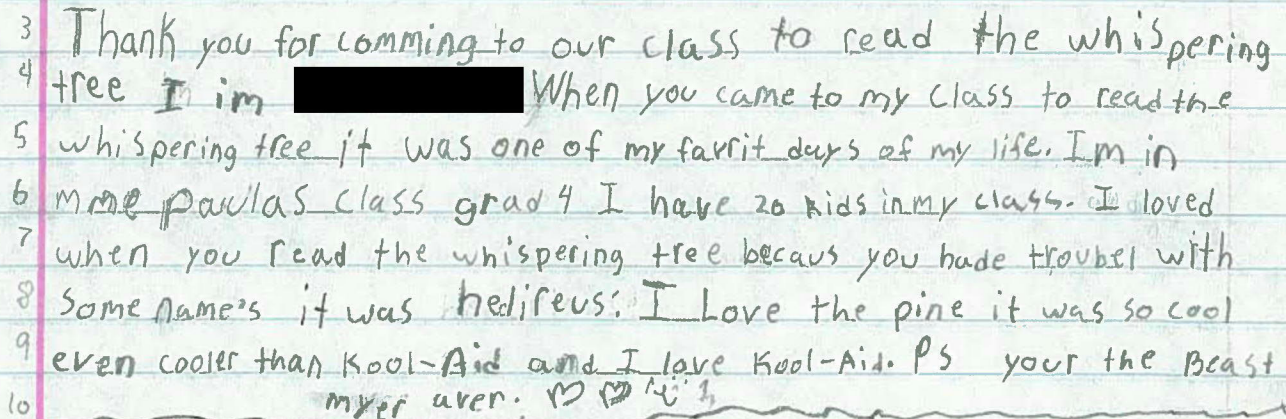 3 Thank you for comming to our class to read the whispering
4 tree I im When you came to my class to read the
5 whispering tree it was one of my favrit days of my life. Im in
6 mme paulas class grad 4 I have 20 kids in my class. I loved
7 when you read the whispering tree becaus you hade troubel with
8 Some name's it was helireus. I Love the pine it was so cool
9 even cooler than Kool-Aid and I love Kool-Aid. PS your the Beast
10 myer aver.